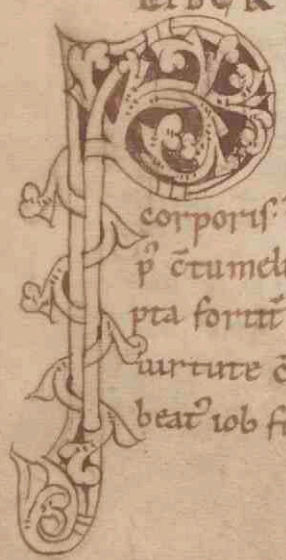 LIBER
P
corporis.
pꝰ c̄tumeli
pta fortit̄
uirtute c̄
beatꝰ iob f